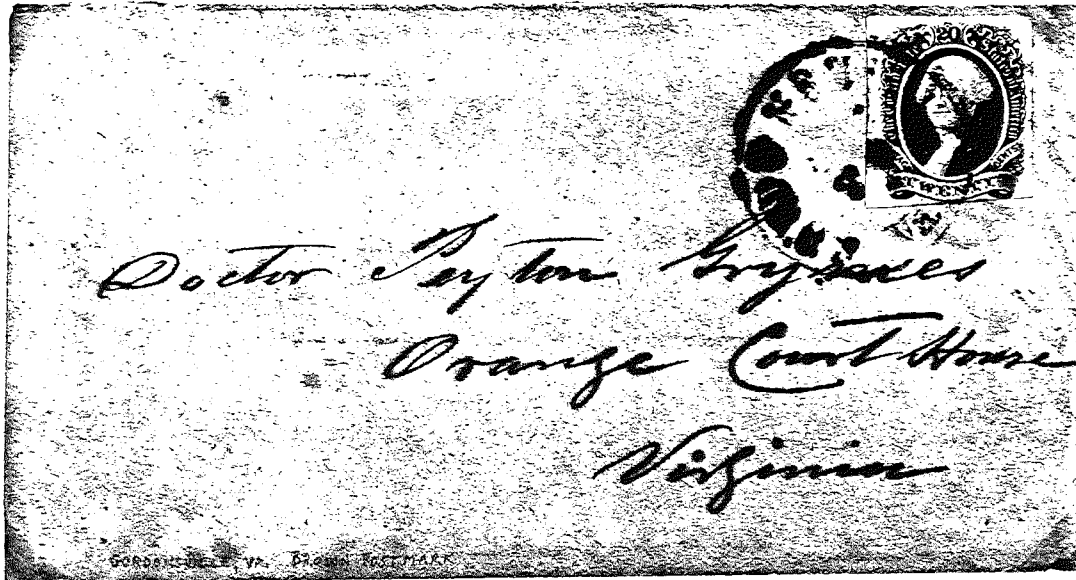 20
TWENTY
Doctor Peyton Grymes
Orange Court House
Virginia
GORDONSVILLE, VA. BROWN POSTMARK